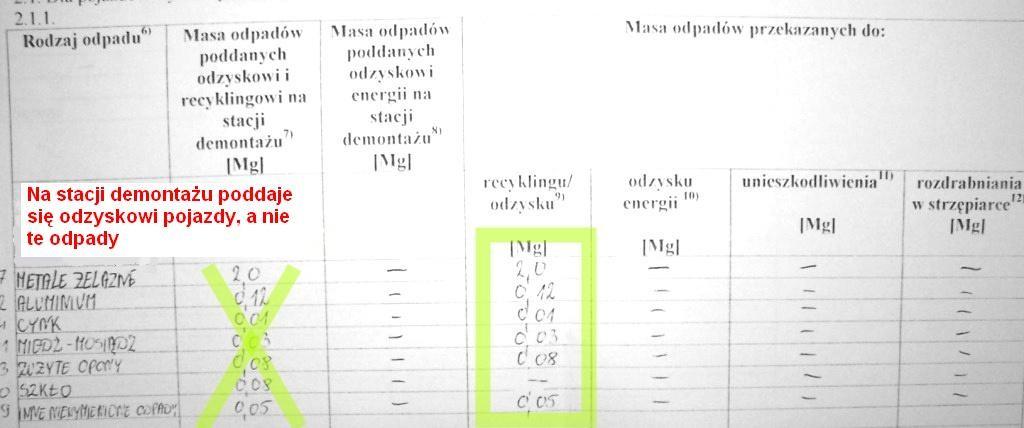 2.1.1.
Rodzaj odpadu6)
Masa odpadów
poddanych
odzyskowi i
recyklingowi na
stacji
demontażu7)
[Mg]
Masa odpadów
poddanych
odzyskowi
energii na
stacji
demontażu8)
[Mg]
Masa odpadów przekazanych do:
recyklingu/
odzysku9)
[Mg]
odzysku
energii 10)
[Mg]
unieszkodliwienia11)
[Mg]
rozdrabniania
w strzępiarce12)
[Mg]
Na stacji demontażu poddaje
się odzyskowi pojazdy, a nie
te odpady
7 METALE ŻELAZNE 2,0 — 2,0 — — —
2 ALUMINIUM 0,12 — 0,12 — — —
1 CYNK 0,01 — 0,01 — — —
1 MIEDŹ - MOSIĄDZ 0,03 — 0,03 — — —
3 ZUŻYTE OPONY 0,08 — 0,08 — — —
0 SZKŁO 0,08 — -- — — —
9 INNE NIEWYMIENIONE ODPADY 0,05 — 0,05 — — —